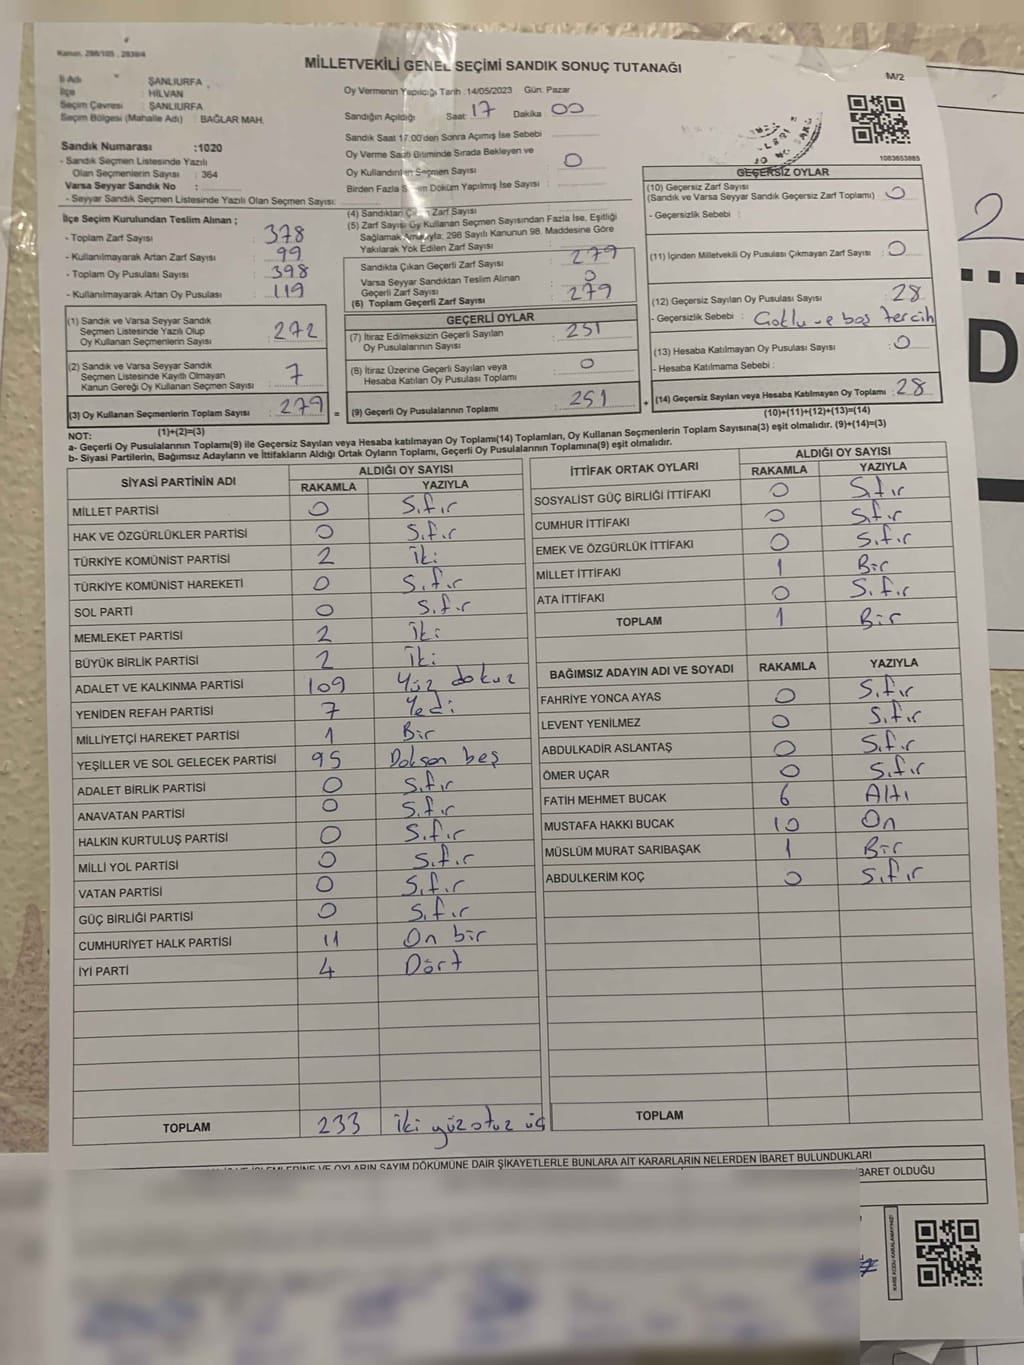 Kanun. 298/105 , 2839/4
MİLLETVEKİLİ GENEL SEÇİMİ SANDIK SONUÇ TUTANAĞI
M/2
İl Adı : ŞANLIURFA
İlçe : HİLVAN
Seçim Çevresi : ŞANLIURFA
Seçim Bölgesi (Mahalle Adı) : BAĞLAR MAH.
Oy Vermenin Yapıldığı Tarih :14/05/2023 Gün: Pazar
Sandığın Açıldığı Saat: 17 Dakika : 00
Sandık Saat 17:00'den Sonra Açımış İse Sebebi
Oy Verme Saati Bitiminde Sırada Bekleyen ve
Oy Kullandırılan Seçmen Sayısı : 0
Birden Fazla Sayım Döküm Yapılmış İse Sayısı :
1083653885
Sandık Numarası :1020
- Sandık Seçmen Listesinde Yazılı
Olan Seçmenlerin Sayısı : 364
Varsa Seyyar Sandık No :
- Seyyar Sandık Seçmen Listesinde Yazılı Olan Seçmen Sayısı:
İlçe Seçim Kurulundan Teslim Alınan ;
- Toplam Zarf Sayısı : 378
- Kullanılmayarak Artan Zarf Sayısı : 99
- Toplam Oy Pusulası Sayısı : 398
- Kullanılmayarak Artan Oy Pusulası : 119
(1) Sandık ve Varsa Seyyar Sandık
Seçmen Listesinde Yazılı Olup
Oy Kullanan Seçmenlerin Sayısı : 272
(2) Sandık ve Varsa Seyyar Sandık
Seçmen Listesinde Kayıtlı Olmayan
Kanun Gereği Oy Kullanan Seçmen Sayısı : 7
(3) Oy Kullanan Seçmenlerin Toplam Sayısı : 279 =
(1)+(2)=(3)
(4) Sandıktan Çıkan Zarf Sayısı
(5) Zarf Sayısı Oy Kullanan Seçmen Sayısından Fazla İse, Eşitliği
Sağlamak Amacıyla; 298 Sayılı Kanunun 98. Maddesine Göre
Yakılarak Yok Edilen Zarf Sayısı
Sandıkta Çıkan Geçerli Zarf Sayısı : 279
Varsa Seyyar Sandıktan Teslim Alınan
Geçerli Zarf Sayısı : 0
(6) Toplam Geçerli Zarf Sayısı : 279
GEÇERLİ OYLAR
(7) İtiraz Edilmeksizin Geçerli Sayılan
Oy Pusulalarının Sayısı : 251
(8) İtiraz Üzerine Geçerli Sayılan veya
Hesaba Katılan Oy Pusulası Toplamı : 0
(9) Geçerli Oy Pusulalarının Toplamı : 251 +
GEÇERSİZ OYLAR
(10) Geçersiz Zarf Sayısı
(Sandık ve Varsa Seyyar Sandık Geçersiz Zarf Toplamı) : 0
- Geçersizlik Sebebi :
(11) İçinden Milletvekili Oy Pusulası Çıkmayan Zarf Sayısı : 0
(12) Geçersiz Sayılan Oy Pusulası Sayısı : 28
- Geçersizlik Sebebi : Çoklu ve boş tercih
(13) Hesaba Katılmayan Oy Pusulası Sayısı : 0
- Hesaba Katılmama Sebebi :
(14) Geçersiz Sayılan veya Hesaba Katılmayan Oy Toplamı : 28
(10)+(11)+(12)+(13)=(14)
NOT:
a- Geçerli Oy Pusulalarının Toplamı(9) ile Geçersiz Sayılan veya Hesaba katılmayan Oy Toplamı(14) Toplamları, Oy Kullanan Seçmenlerin Toplam Sayısına(3) eşit olmalıdır. (9)+(14)=(3)
b- Siyasi Partilerin, Bağımsız Adayların ve İttifakların Aldığı Ortak Oyların Toplamı, Geçerli Oy Pusulalarının Toplamına(9) eşit olmalıdır.
SİYASİ PARTİNİN ADI ALDIĞI OY SAYISI
RAKAMLA YAZIYLA
MİLLET PARTİSİ 0 Sıfır
HAK VE ÖZGÜRLÜKLER PARTİSİ 0 Sıfır
TÜRKİYE KOMÜNİST PARTİSİ 2 İki
TÜRKİYE KOMÜNİST HAREKETİ 0 Sıfır
SOL PARTİ 0 Sıfır
MEMLEKET PARTİSİ 2 İki
BÜYÜK BİRLİK PARTİSİ 2 İki
ADALET VE KALKINMA PARTİSİ 109 Yüz dokuz
YENİDEN REFAH PARTİSİ 7 Yedi
MİLLİYETÇİ HAREKET PARTİSİ 1 Bir
YEŞİLLER VE SOL GELECEK PARTİSİ 95 Doksan beş
ADALET BİRLİK PARTİSİ 0 Sıfır
ANAVATAN PARTİSİ 0 Sıfır
HALKIN KURTULUŞ PARTİSİ 0 Sıfır
MİLLİ YOL PARTİSİ 0 Sıfır
VATAN PARTİSİ 0 Sıfır
GÜÇ BİRLİĞİ PARTİSİ 0 Sıfır
CUMHURİYET HALK PARTİSİ 11 On bir
İYİ PARTİ 4 Dört
TOPLAM 233 İki yüz otuz üç
İTTİFAK ORTAK OYLARI ALDIĞI OY SAYISI
RAKAMLA YAZIYLA
SOSYALİST GÜÇ BİRLİĞİ İTTİFAKI 0 Sıfır
CUMHUR İTTİFAKI 0 Sıfır
EMEK VE ÖZGÜRLÜK İTTİFAKI 0 Sıfır
MİLLET İTTİFAKI 1 Bir
ATA İTTİFAKI 0 Sıfır
TOPLAM 1 Bir
BAĞIMSIZ ADAYIN ADI VE SOYADI RAKAMLA YAZIYLA
FAHRİYE YONCA AYAS 0 Sıfır
LEVENT YENİLMEZ 0 Sıfır
ABDULKADİR ASLANTAŞ 0 Sıfır
ÖMER UÇAR 0 Sıfır
FATİH MEHMET BUCAK 6 Altı
MUSTAFA HAKKI BUCAK 10 On
MÜSLÜM MURAT SARIBAŞAK 1 Bir
ABDULKERİM KOÇ 0 Sıfır
TOPLAM
OYLARIN SAYIM DÖKÜMÜNE DAİR ŞİKAYETLERLE BUNLARA AİT KARARLARIN NELERDEN İBARET BULUNDUKLARI
BARET OLDUĞU
KARE KODU KARALAMAYINIZ!
2
D